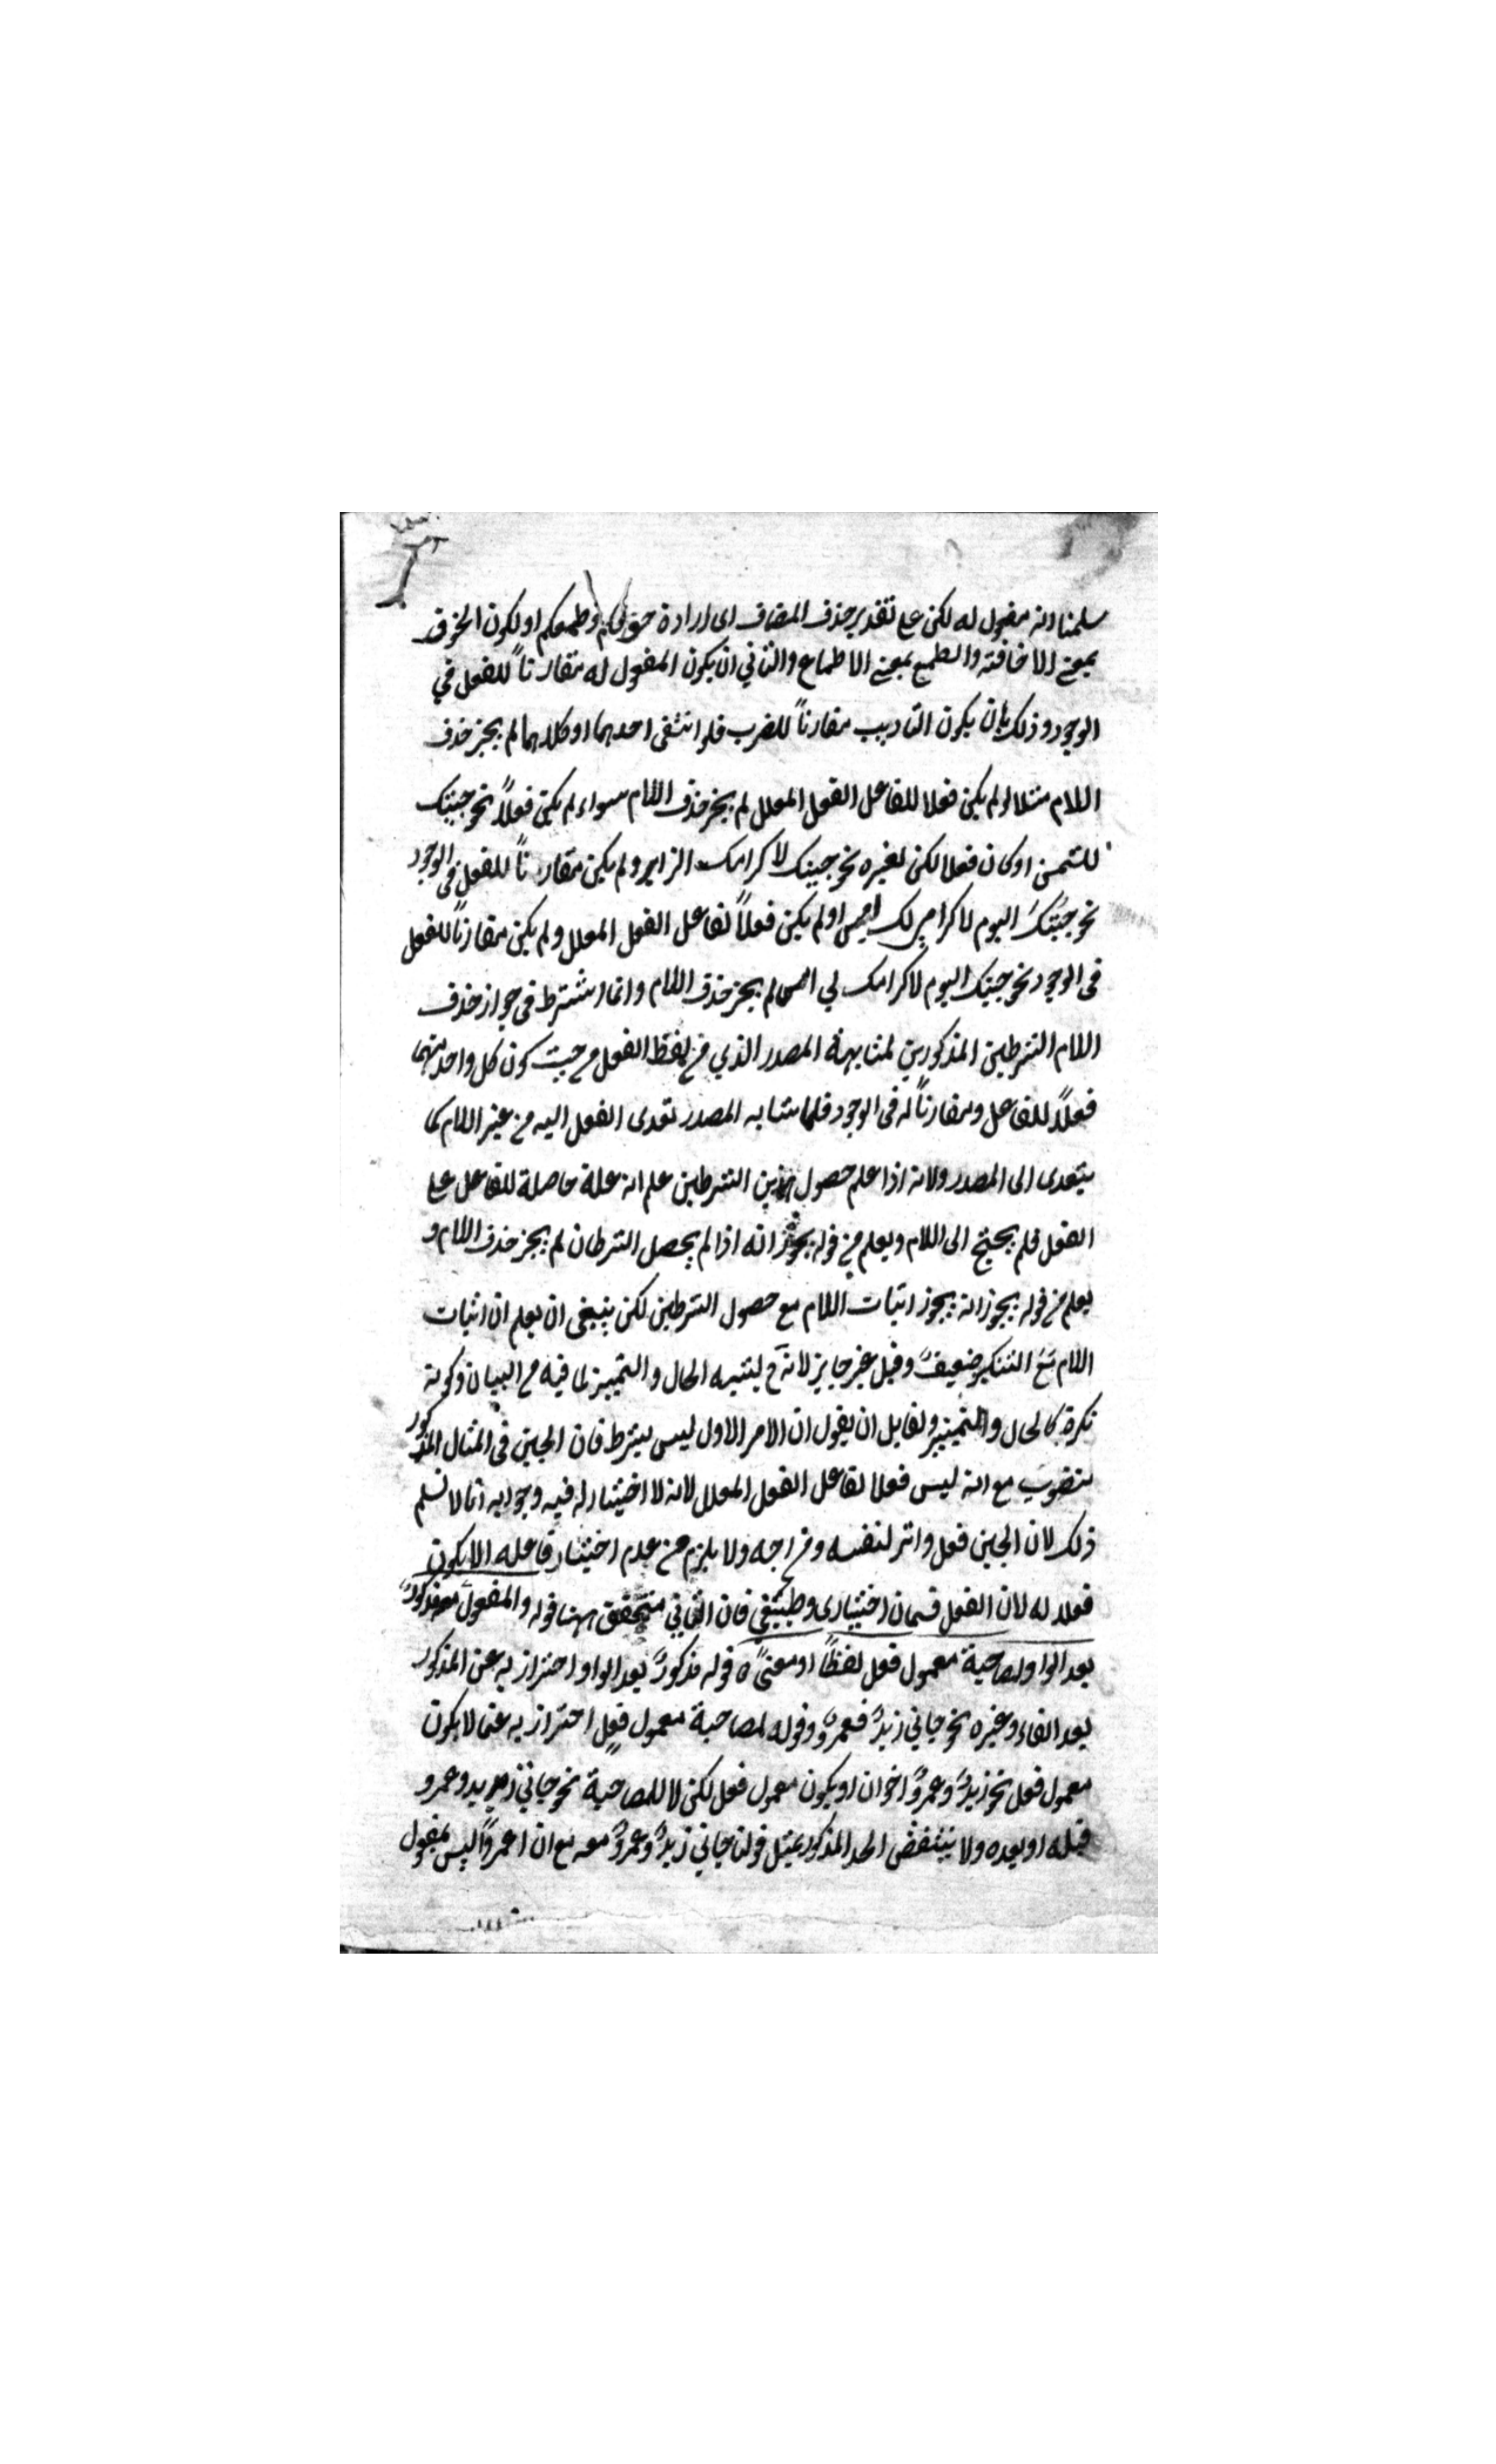 سلمنا انه مفعول له لكن على تقدير حذف المضاف اى ارادة خوفكم وطمعكم او لكون الخوف
بمعنى الاخافته والطمع بمعنى الاطماع والثاني ان يكون المفعول له مقارناً للفعل في
الوجود وذلك بان يكون التاديب مقارناً للضرب فلو انتفى احدهما او كلاهما لم يجز حذف
اللام مثلا لو لم يكن فعلا للفاعل الفعل المعلل لم يجز حذف اللام سواء لم يكن فعلاً نحو جيتك
للسمن او كان فعلا لكن لغيره نحو جيتك لاكرامك الزاير ولم يكن مقارناً للفعل فى الوجود
نحو جيتكَ اليوم لاكرامي لك امس او لم يكن فعلاً لفاعل الفعل المعلل ولم يكن مقارناً للفعل
فى الوجود نحو جيتك اليوم لاكرامك لي امس لم يجز حذف اللام وانما اشترط فى جواز حذف
اللام الشرطين المذكورين لمشابهة المصدر الذي من لفظ الفعل من حيث كون كل واحد منهما
فعلاً للفاعل ومقارناً له فى الوجود فلما شابه المصدر تعدى الفعل اليه من غير اللام كما
يتعدى الى المصدر ولانه اذا علم حصول هذين الشرطين علم انه علة حاصلة للفاعل على
الفعل فلم يحتج الى اللام ويعلم من قوله يجوز انه اذا لم يحصل الشرطان لم يجز حذف اللام و
يعلم من قوله يجوز انه يجوز اثبات اللام مع حصول الشرطين لكن ينبغى ان يعلم ان اثبات
اللام مَعَ التنكير ضعيفٌ وقيل غير جايز لانه ح يشبه الحال والتمييز لما فيه من البيان وكونه
نكرة كالحال والتمييز ولقايل ان يقول ان الامر الاول ليس بشرط فان الجبن فى المثال المذكور
منصوب مع انه ليس فعلا لفاعل الفعل المعلل لانه لا اختيار له فيه وجوابه انا لا نسلم
ذلك لان الجبن فعل واثر لنفسه ومزاجه ولا يلزم من عدم اختيار فاعله الا يكون
فعلا له لان الفعل قسمان اختيارى وطبيعي فان الثاني متحقق ههنا قوله والمفعول معه مذكورٌ
بعد الواو لمصاحبة معمول فعل لفظاً او معنىً ه قوله مذكورٌ بعد الواو احتراز به عن المذكور
بعد الفاء وغيره نحو جاني زيدٌ فعمروٌ وقوله لمصاحبة معمول فعل احتراز به عما لا يكون
معمول فعل نحو زيدٌ وعمروٌ اخوان او يكون معمول فعل لكن لا للمصاحبة نحو جاني زيد وعمرو
قبله او بعده ولا ينتقض الحد المذكور بمثل قولنا جاني زيدٌ وعمروٌ معه مع ان عمرواً ليس بمفعول